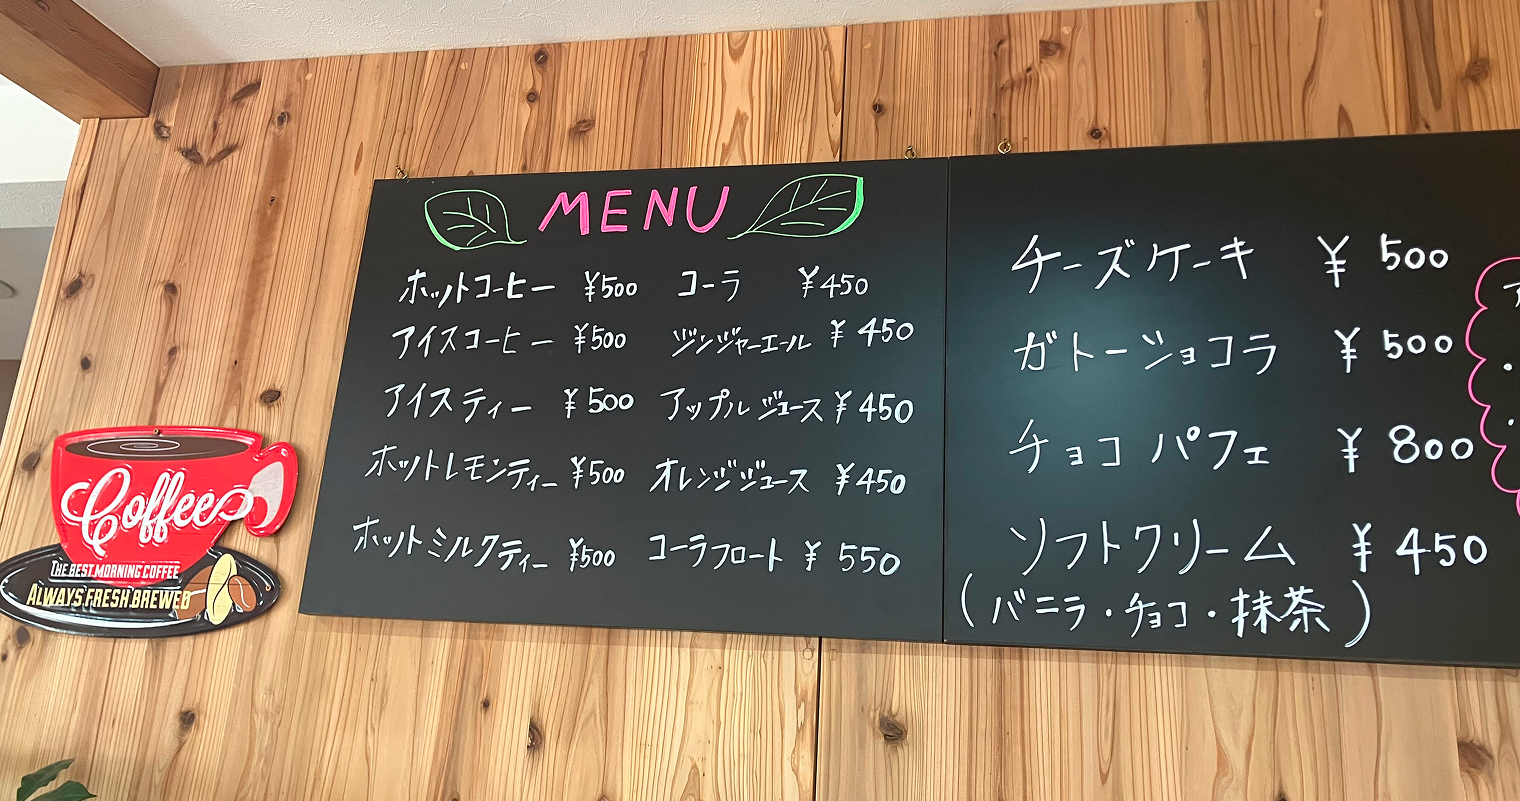 Coffee
THE BEST MORNING COFFEE
ALWAYS FRESH BREWED
MENU
ホットコーヒー ¥500
アイスコーヒー ¥500
アイスティー ¥500
ホットレモンティー ¥500
ホットミルクティー ¥500
コーラ ¥450
ジンジャーエール ¥450
アップルジュース ¥450
オレンジジュース ¥450
コーラフロート ¥550
チーズケーキ ¥500
ガトーショコラ ¥500
チョコパフェ ¥800
ソフトクリーム ¥450
(バニラ・チョコ・抹茶)